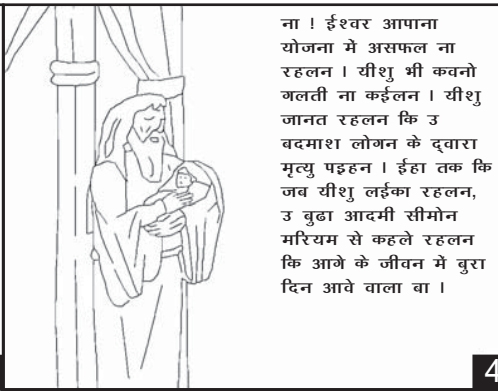 ना ! ईश्वर आपाना
योजना में असफल ना
रहलन । यीशु भी कवनो
गलती ना कईलन । यीशु
जानत रहलन कि उ
बदमाश लोगन के द्वारा
मृत्यु पइहन । ईहा तक कि
जब यीशु लईका रहलन,
उ बुढा आदमी सीमोन
मरियम से कहले रहलन
कि आगे के जीवन में बुरा
दिन आवे वाला बा ।
4